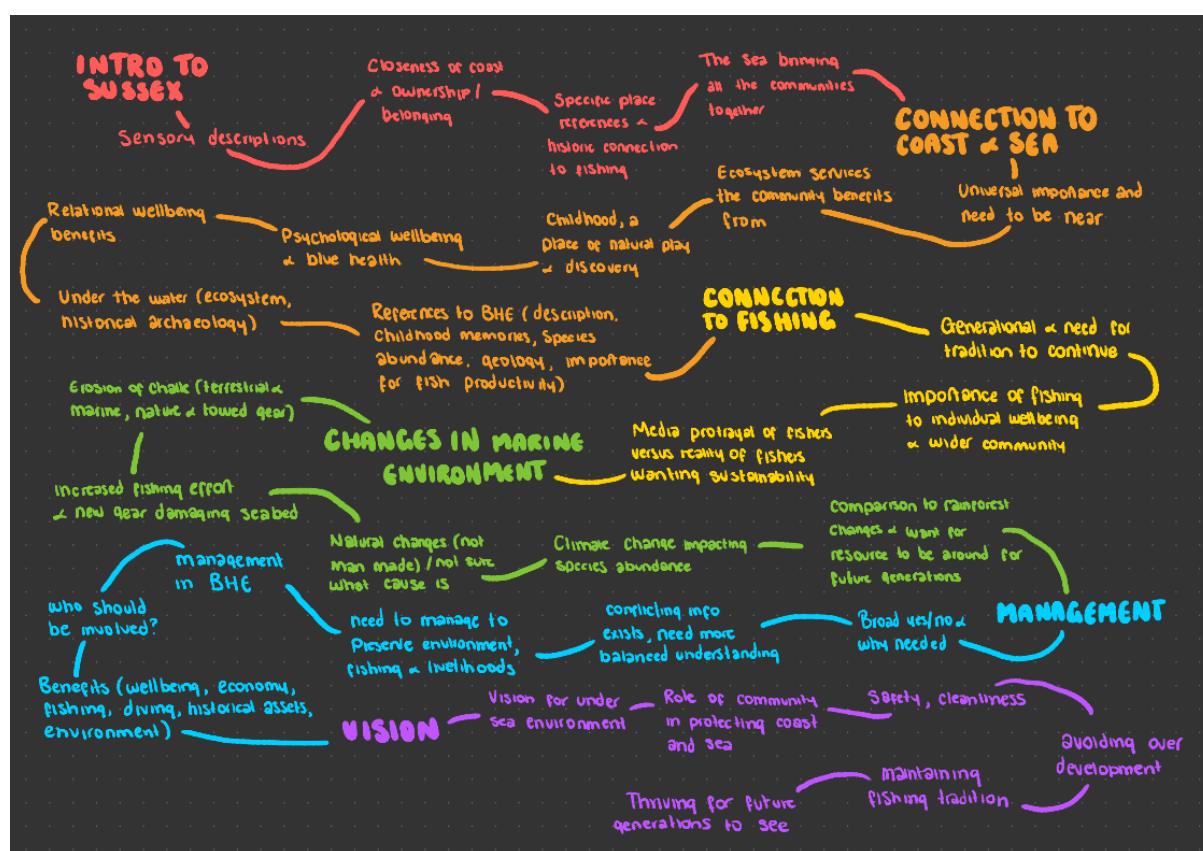 INTRO TO
SUSSEX
Sensory descriptions
Closeness of coast
& ownership/
belonging
Specific place
references &
historic connection
to fishing
The sea bringing
all the communities
together
CONNECTION TO
COAST & SEA
Universal importance and
need to be near
Ecosystem services
the community benefits
from
Childhood, a
place of natural play
& discovery
Psychological wellbeing
& blue health
Relational wellbeing
benefits
Under the water (ecosystem,
historical archaeology)
References to BHE (description,
Childhood memories, Species
abundance, geology, importance
for fish productivity)
CONNECTION
TO FISHING
Generational & need for
tradition to continue
Importance of fishing
to individual wellbeing
& wider community
Media protrayal of fishers
versus reality of fishers
wanting sustainability
CHANGES IN MARINE
ENVIRONMENT
Erosion of chalk (terrestrial &
marine, nature & towed gear)
Increased fishing effort
& new gear damaging seabed
Natural changes (not
man made) / not sure
what cause is
Climate change impacting
species abundance
Comparison to rainforest
changes & want for
resource to be around for
future generations
MANAGEMENT
Broad yes/no &
why needed
conflicting info
exists, need more
balanced understanding
need to manage to
Preserve environment,
fishing & livelihoods
management
in BHE
who should
be involved?
Benefits (wellbeing, economy,
fishing, diving, historical assets,
environment)
VISION
Vision for under
sea environment
Role of community
in protecting coast
and sea
Safety, cleanliness
avoiding over
development
maintaining
fishing tradition
Thriving for future
generations to see